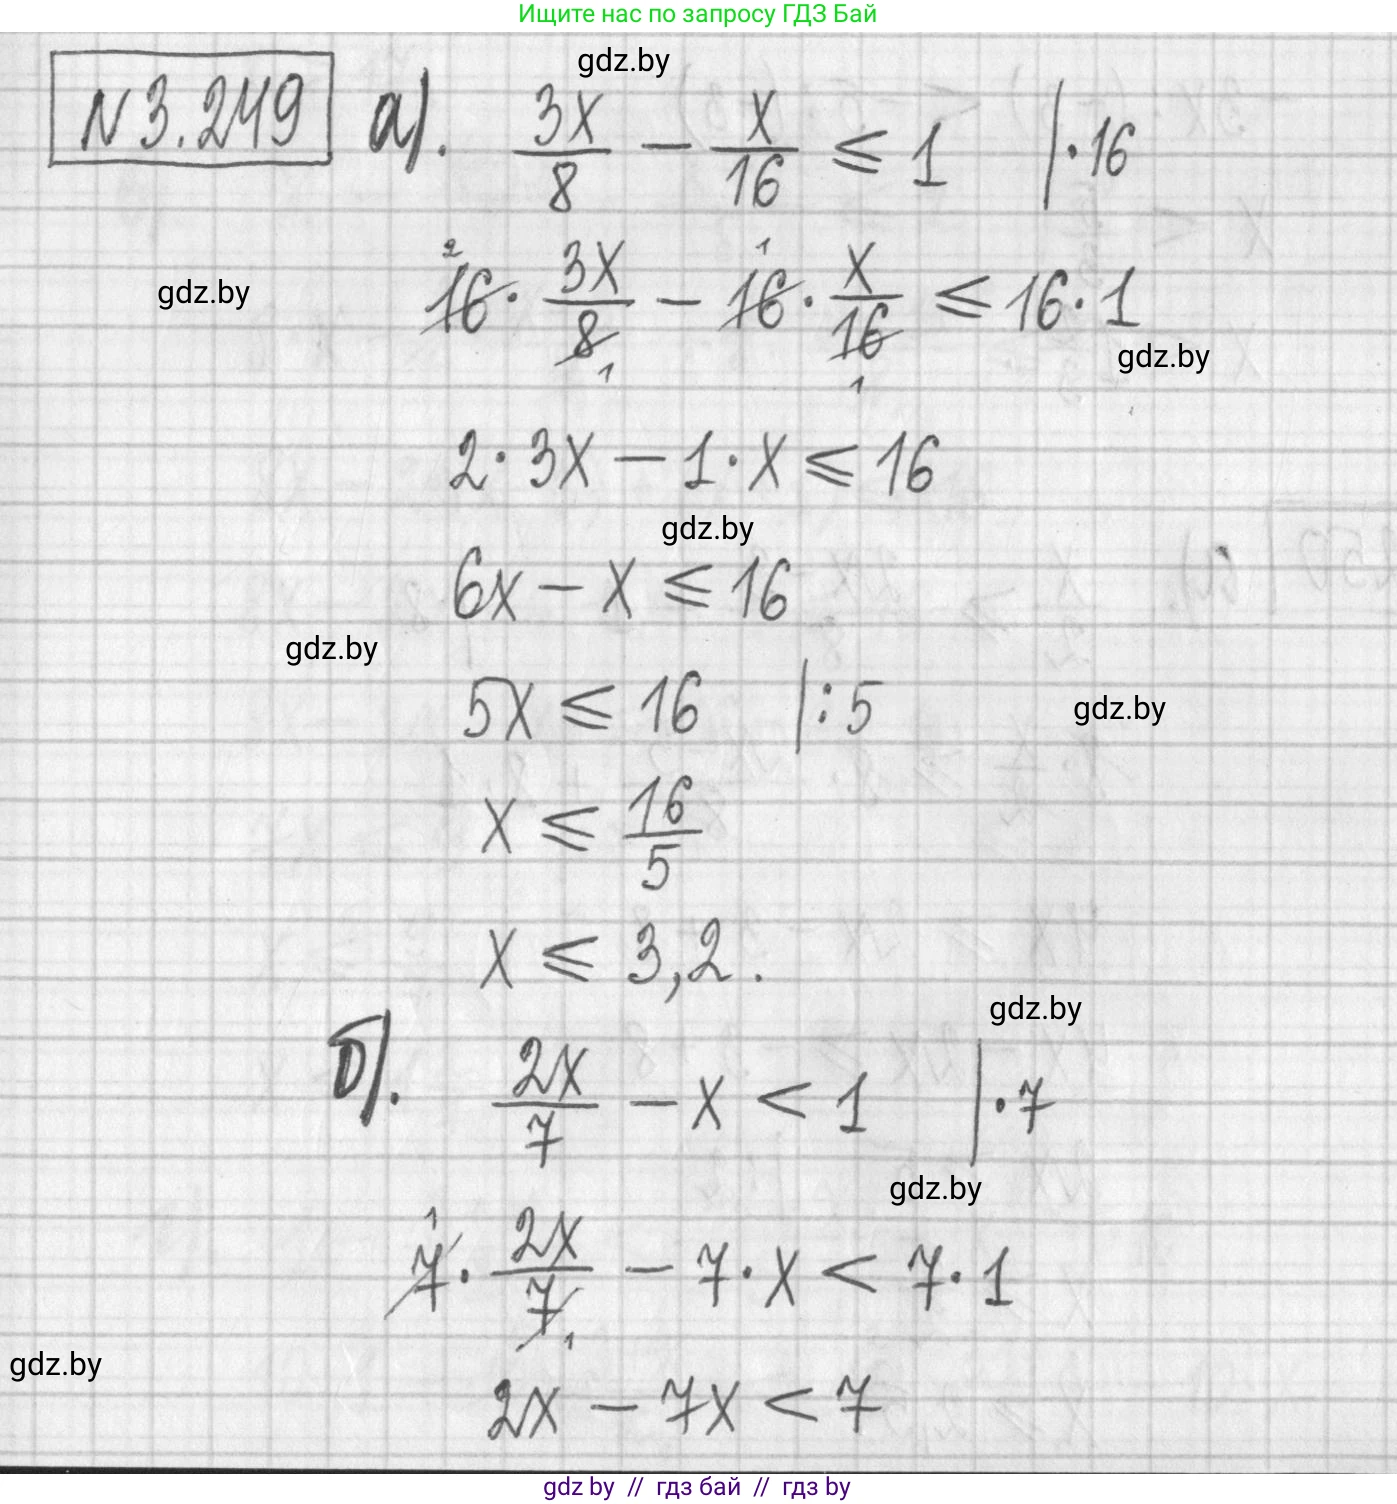 Ищите нас по запросу ГДЗ Бай
gdz.by
N 3.249 а). 3x/8 − x/16 ⩽ 1 | · 16
gdz.by
2 1
16 · 3x/8 − 16 · x/16 ⩽ 16 · 1
1 1
gdz.by
2 · 3x − 1 · x ⩽ 16
gdz.by
6x − x ⩽ 16
gdz.by
5x ⩽ 16 | : 5
gdz.by
x ⩽ 16/5
x ⩽ 3,2.
gdz.by
б). 2x/7 − x < 1 | · 7
gdz.by
1
7 · 2x/7 − 7 · x < 7 · 1
1
gdz.by
2x − 7x < 7
gdz by // гдз бай // гдз by